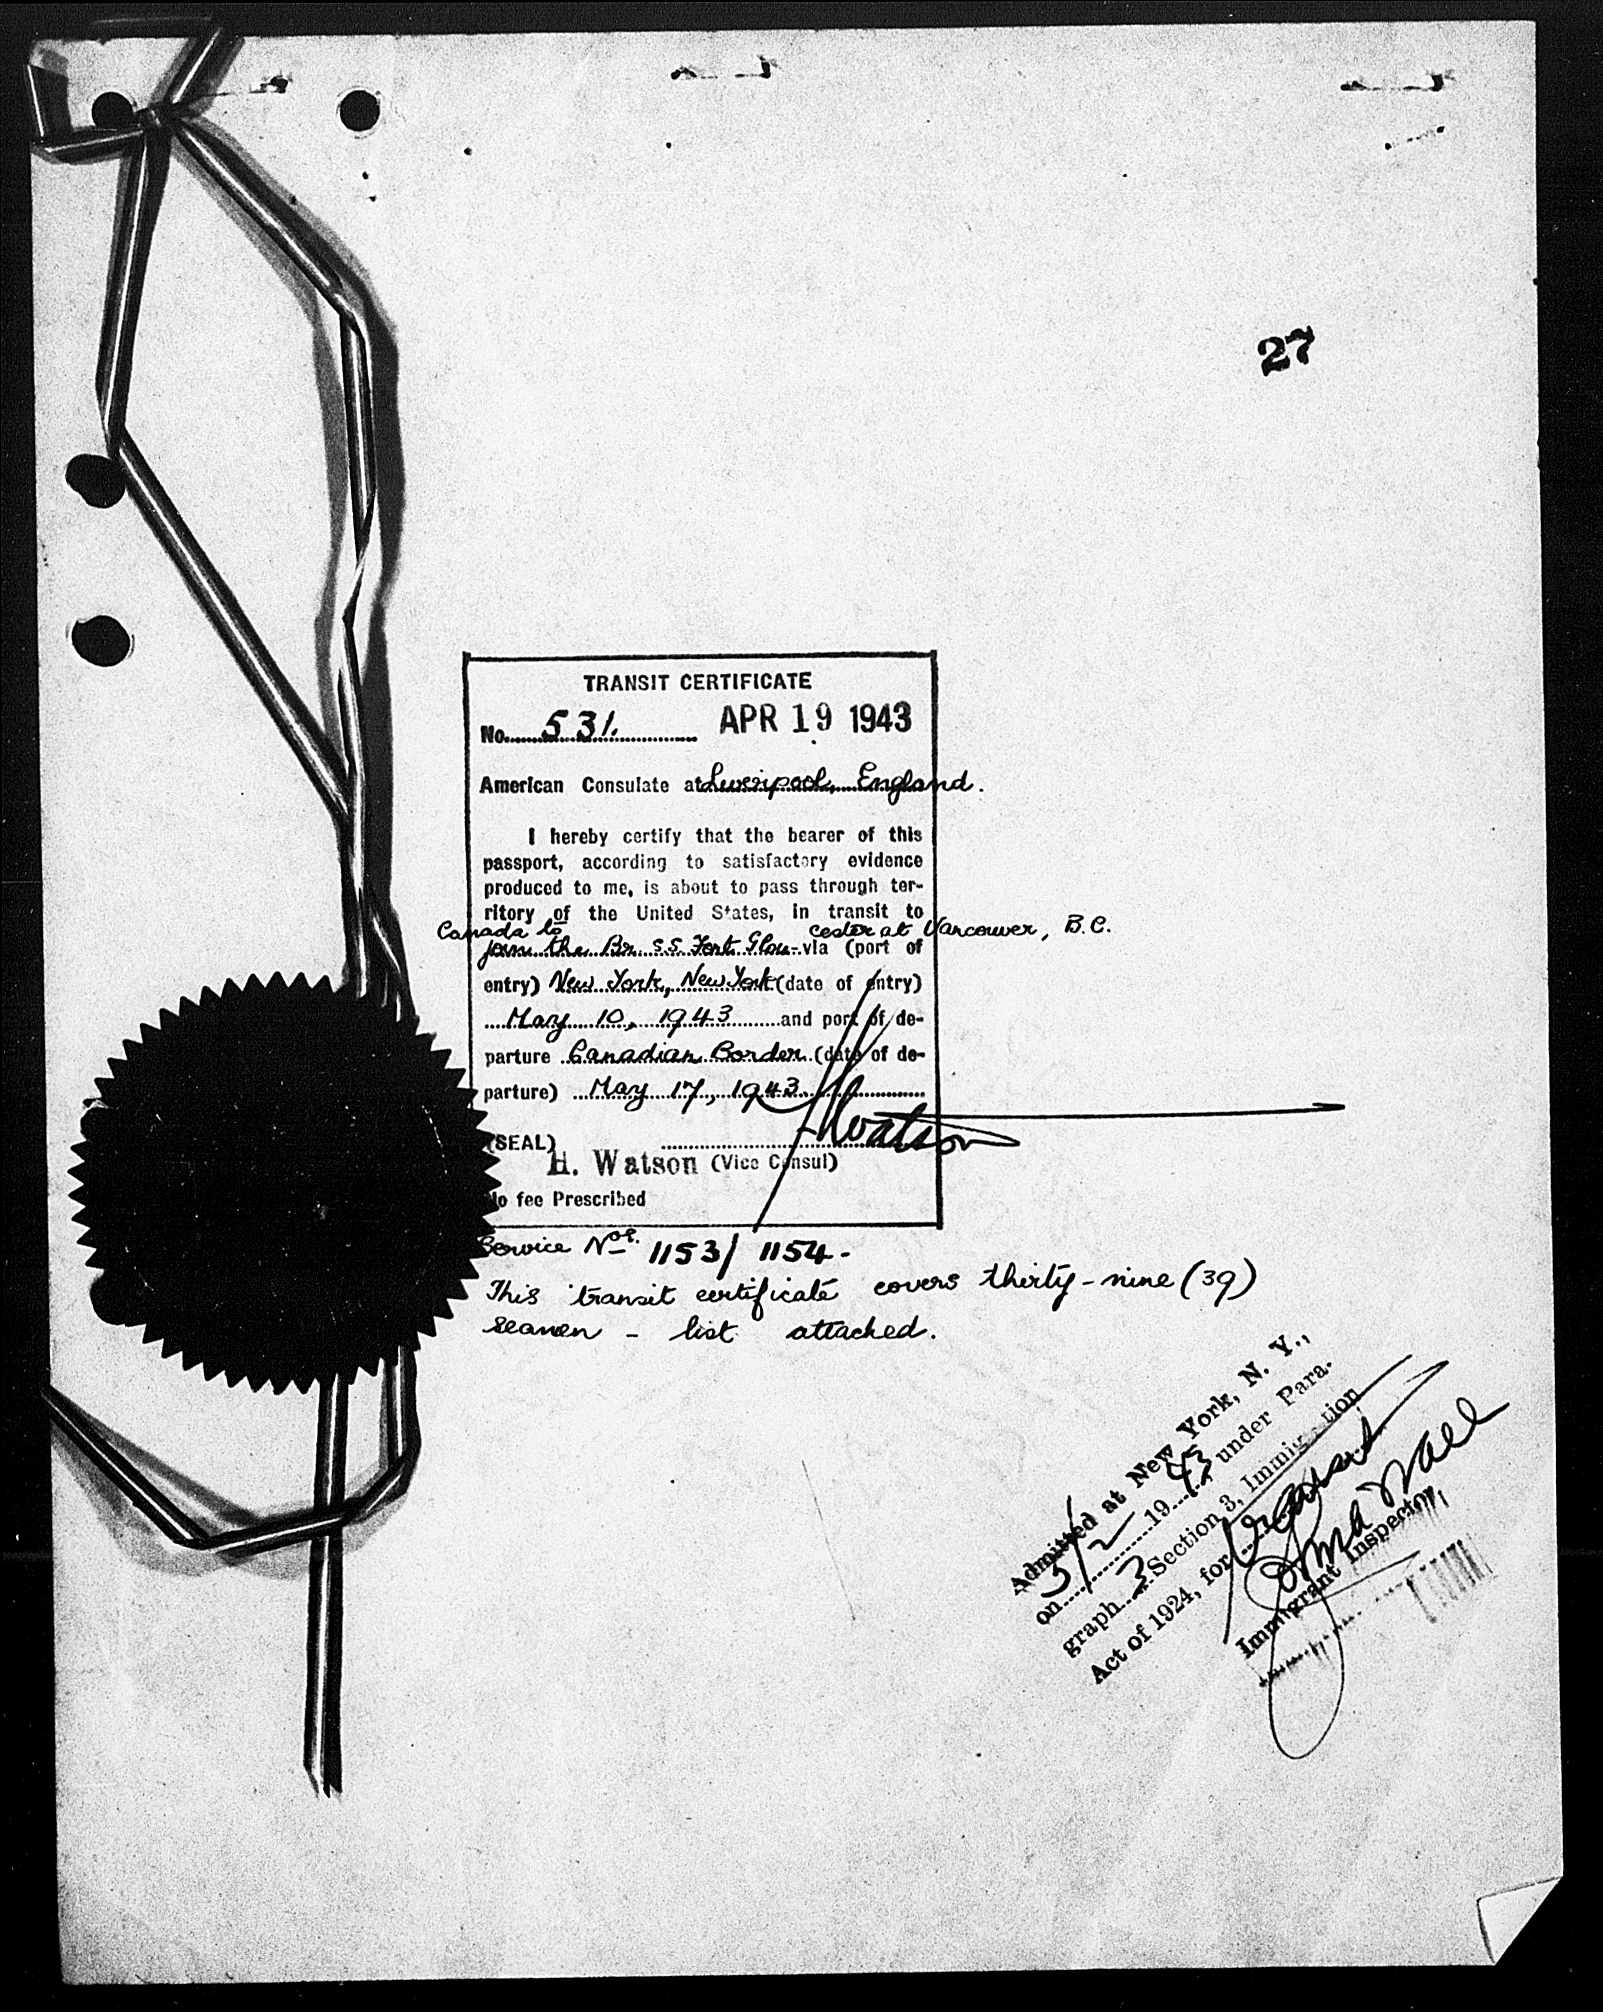 27
TRANSIT CERTIFICATE
No. 531. APR 19 1943
American Consulate at Liverpool, England.
I hereby certify that the bearer of this
passport, according to satisfactory evidence
produced to me, is about to pass through ter-
ritory of the United States, in transit to
Canada to cester at Vancouver, B.C.
join the Br. S.S. Fort Glou- via (port of
entry) New York, New York (date of entry)
May 10, 1943 and port of de-
parture Canadian Border (date of de-
parture) May 17, 1943
HWatson
(SEAL)
H. Watson (Vice Consul)
No fee Prescribed
Service Nos. 1153/1154.
This transit certificate covers thirty-nine (39)
seamen - list attached.
Admitted at New York, N. Y.,
on 5/2 1943 under Para-
graph 3 Section 3, Immigration
Act of 1924, for transit
Immigrant Inspector